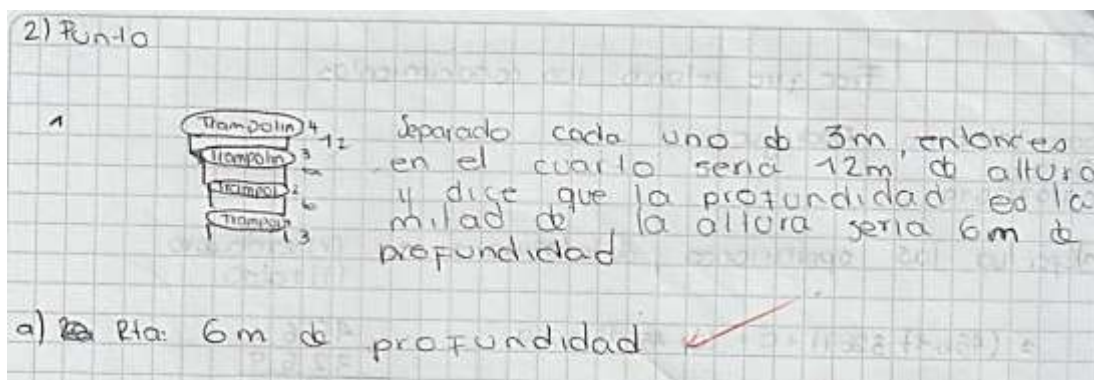 2) Punto
1
Trampolin 4
12
Trampolin 3
Trampol
6
Trampolin 3
Separado cada uno de 3m, entonces
en el cuarto seria 12m de altura
y dice que la profundidad es la
mitad de la altura seria 6m de
profundidad
a) Rta: 6m de profundidad